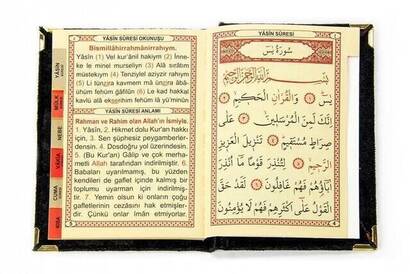 YÂSÎN SÛRESİ OKUNUŞU
Bismillâhirrahmânirrahıym.
Yâsîn (1) Vel kur'ânil hakiym (2) İnne-
ke le minel murseliyn (3) Alâ sırâtım
müstekıym (4) Tenziylel aziyzir rahıym
(5) Li tünzira kavmen mâ ünzira âbâ-
ühüm fehüm ğâfilûn (6) Le kad hakkal
kavlü alâ ekserihim fehüm lâ yü'minûn
YÂSÎN SÛRESİ ANLAMI
Rahman ve Rahim olan Allah'ın İsmiyle.
1. Yâsîn, 2. Hikmet dolu Kur'an hakkı
için, 3. Sen şüphesiz peygamberler-
densin. 4. Dosdoğru yol üzerindesin.
5. (Bu Kur'an) Gâlip ve çok mer-
hametli Allah tarafından indirilmiştir. 6.
Babaları uyarılmamış, bu yüzden
kendileri de gaflet içinde kalmış bir
toplumu uyarman için indirilmiş-
tir. 7. Yemin olsun ki onların çoğu
gafletlerinin cezasını hak etmişler-
dir. Çünkü onlar îman etmiyorlar.
YÂSİN
MÜLK
NEBE
VAKIA
CUMA
KISA
YÂSÎN SÛRESİ
4
سُورَةُ يٰسٓ
بِسْمِ اللّٰهِ الرَّحْمٰنِ الرَّحِيمِ
يٰسٓ ﴿١﴾ وَالْقُرْاٰنِ الْحَكِيمِ ﴿٢﴾
اِنَّكَ لَمِنَ الْمُرْسَلِينَ ﴿٣﴾ عَلٰى
صِرَاطٍ مُسْتَقِيمٍ ﴿٤﴾ تَنْزِيلَ الْعَزِيزِ
الرَّحِيمِ ﴿٥﴾ لِتُنْذِرَ قَوْمًا مَٓا اُنْذِرَ
اٰبَٓاؤُهُمْ فَهُمْ غَافِلُونَ ﴿٦﴾ لَقَدْ حَقَّ
الْقَوْلُ عَلٰٓى اَكْثَرِهِمْ فَهُمْ لَا يُؤْمِنُونَ
4